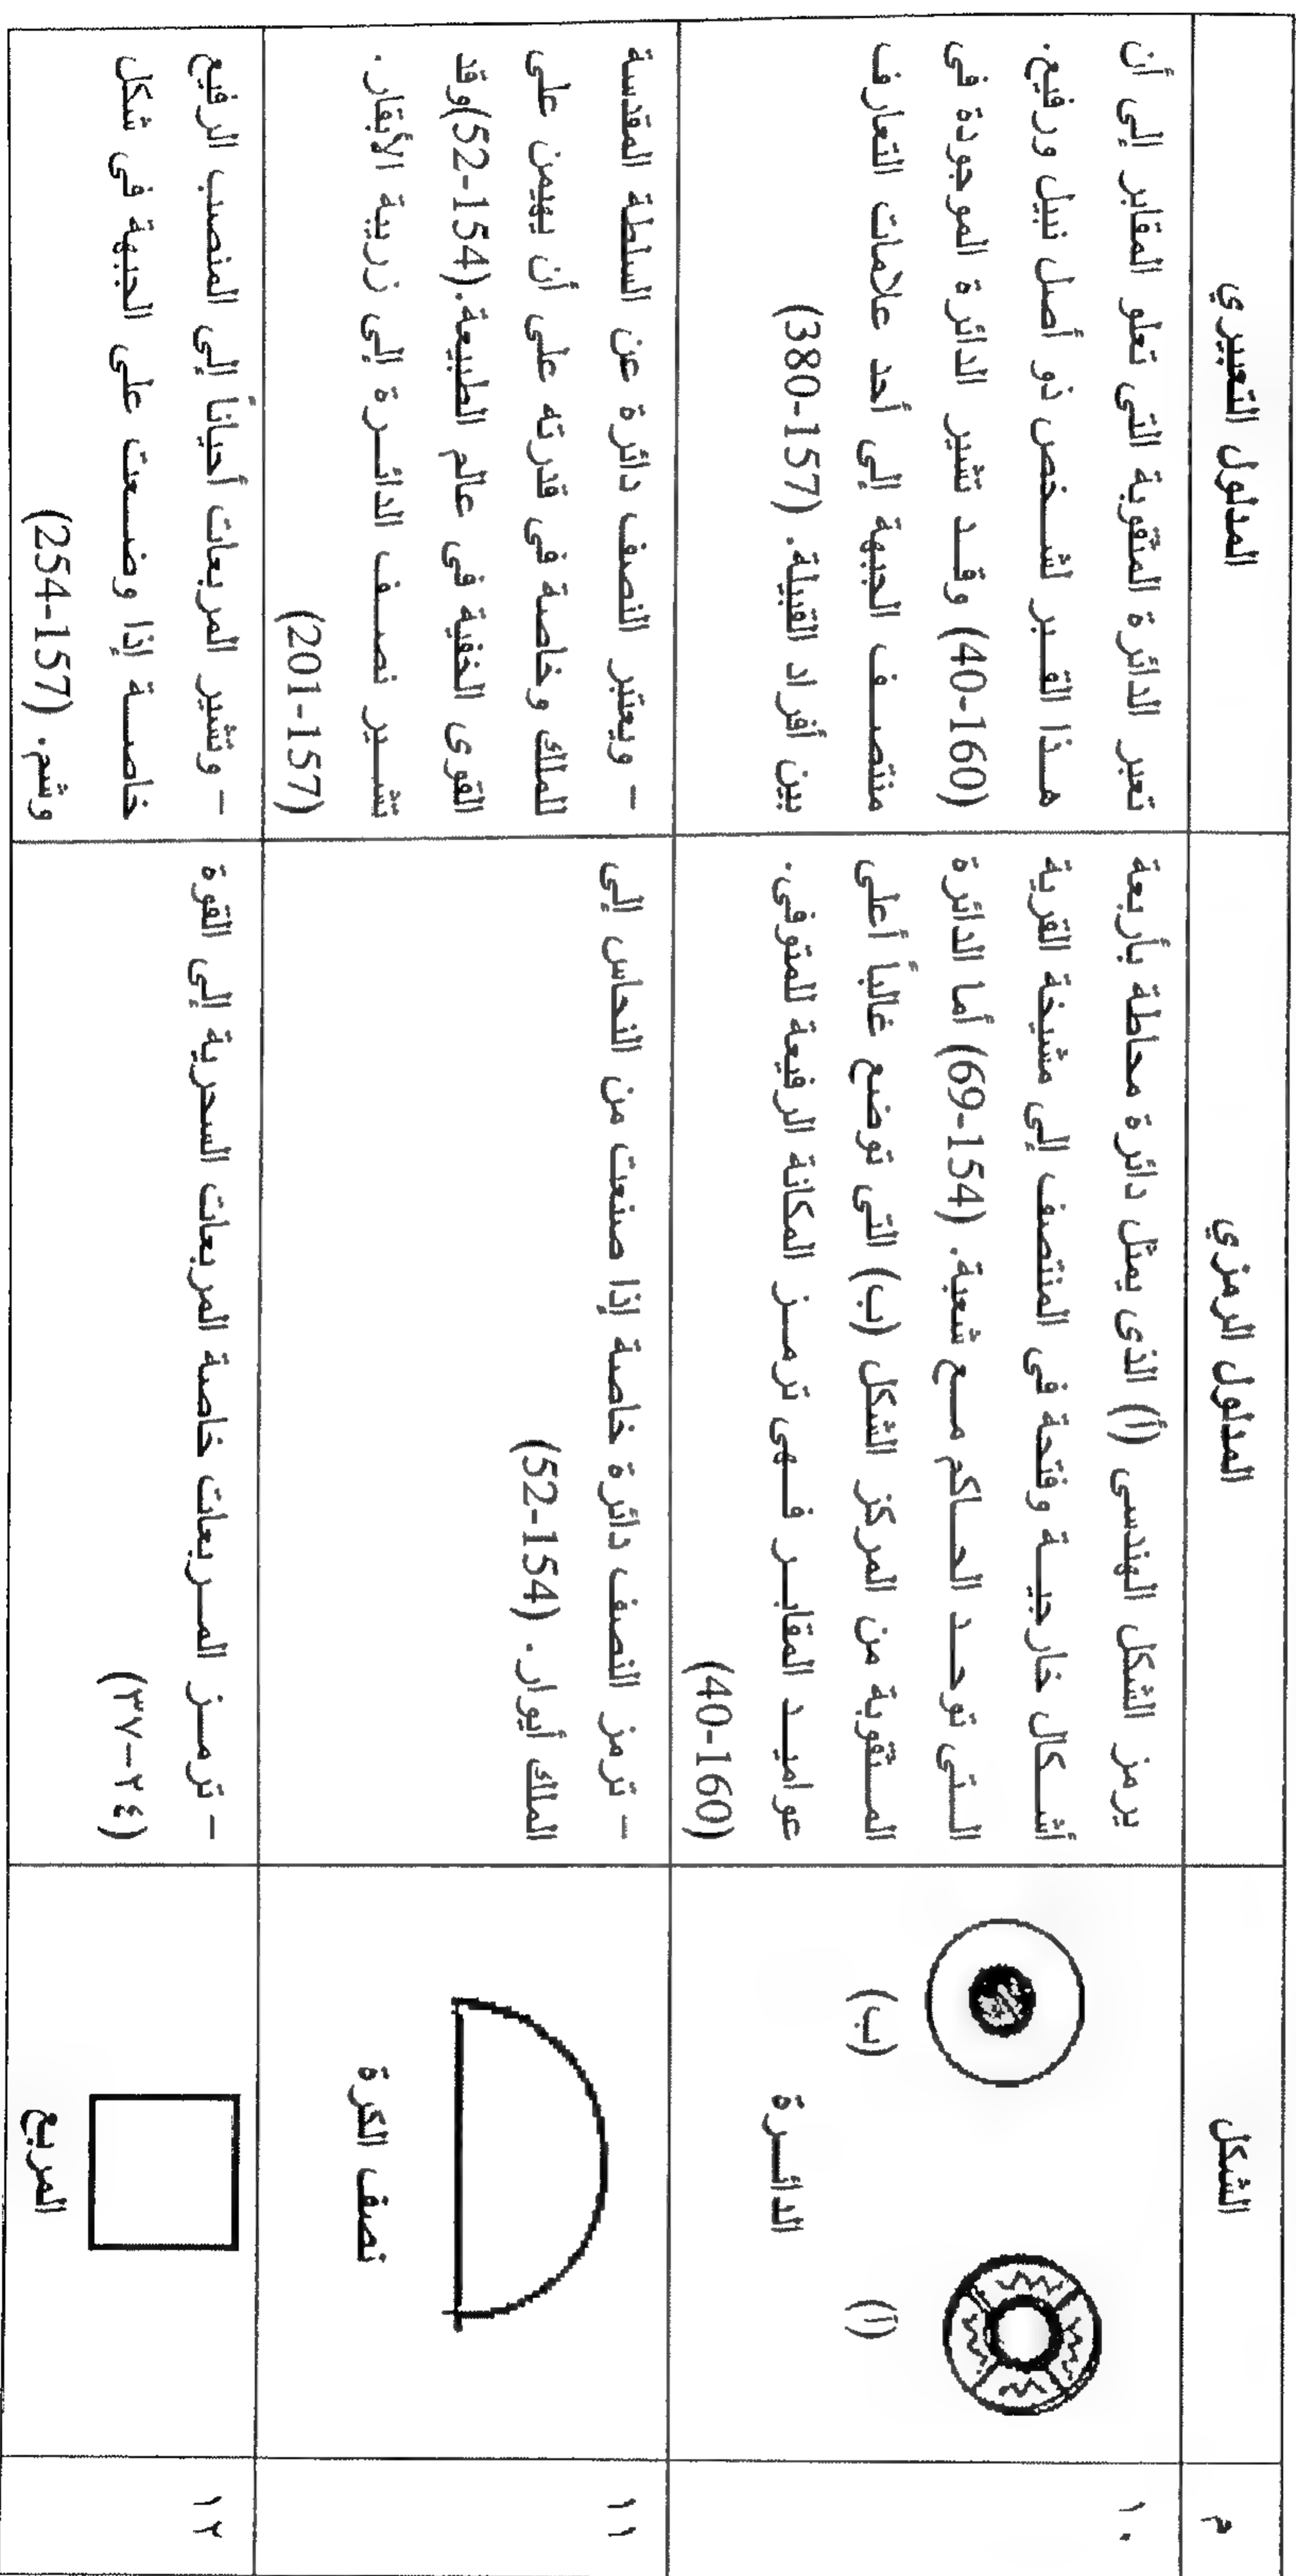 م
الشكل
المدلول الرمزي
المدلول التعبيري
١٠
(أ)
(ب)
الدائـــرة
يرمز الشكل الهندسى (أ) الذى يمثل دائرة محاطة بأربعة
أشـــكال خارجيـــة وفتحة فى المنتصف إلى مشيخة القرية
الـــتى توحـــد الحـــاكم مـــع شعبة. (69-154) أما الدائرة
المـــثقوبة من المركز الشكل (ب) التى توضع غالباً أعلى
عواميـــد المقابـــر فـــهى ترمـــز المكانة الرفيعة للمتوفى.
(40-160)
تعبر الدائرة المثقوبة التى تعلو المقابر إلى أن
هـــذا القـــبر لشـــخص ذو أصل نبيل ورفيع.
(40-160) وقـــد تشير الدائرة الموجودة فى
منتصـــف الجبهة إلى أحد علامات التعارف
بين أفراد القبيلة. (380-157)
١١
نصف الكرة
– ترمز النصف دائرة خاصة إذا صنعت من النحاس إلى
الملك أيوار. (52-154)
– ويعتبر النصف دائرة عن السلطة المقدسة
للملك وخاصة فى قدرته على أن يهيمن على
القوى الخفية فى عالم الطبيعة.(52-154)وقد
تشـــير نصـــف الدائـــرة إلى زريبة الأبقار.
(201-157)
١٢
المربع
– ترمـــز المـــربعات خاصة المربعات السحرية إلى القوة
(٢٤–٣٧)
– وتشير المربعات أحياناً إلى المنصب الرفيع
خاصـــة إذا وضـــعت على الجبهة فى شكل
وشم. (254-157)